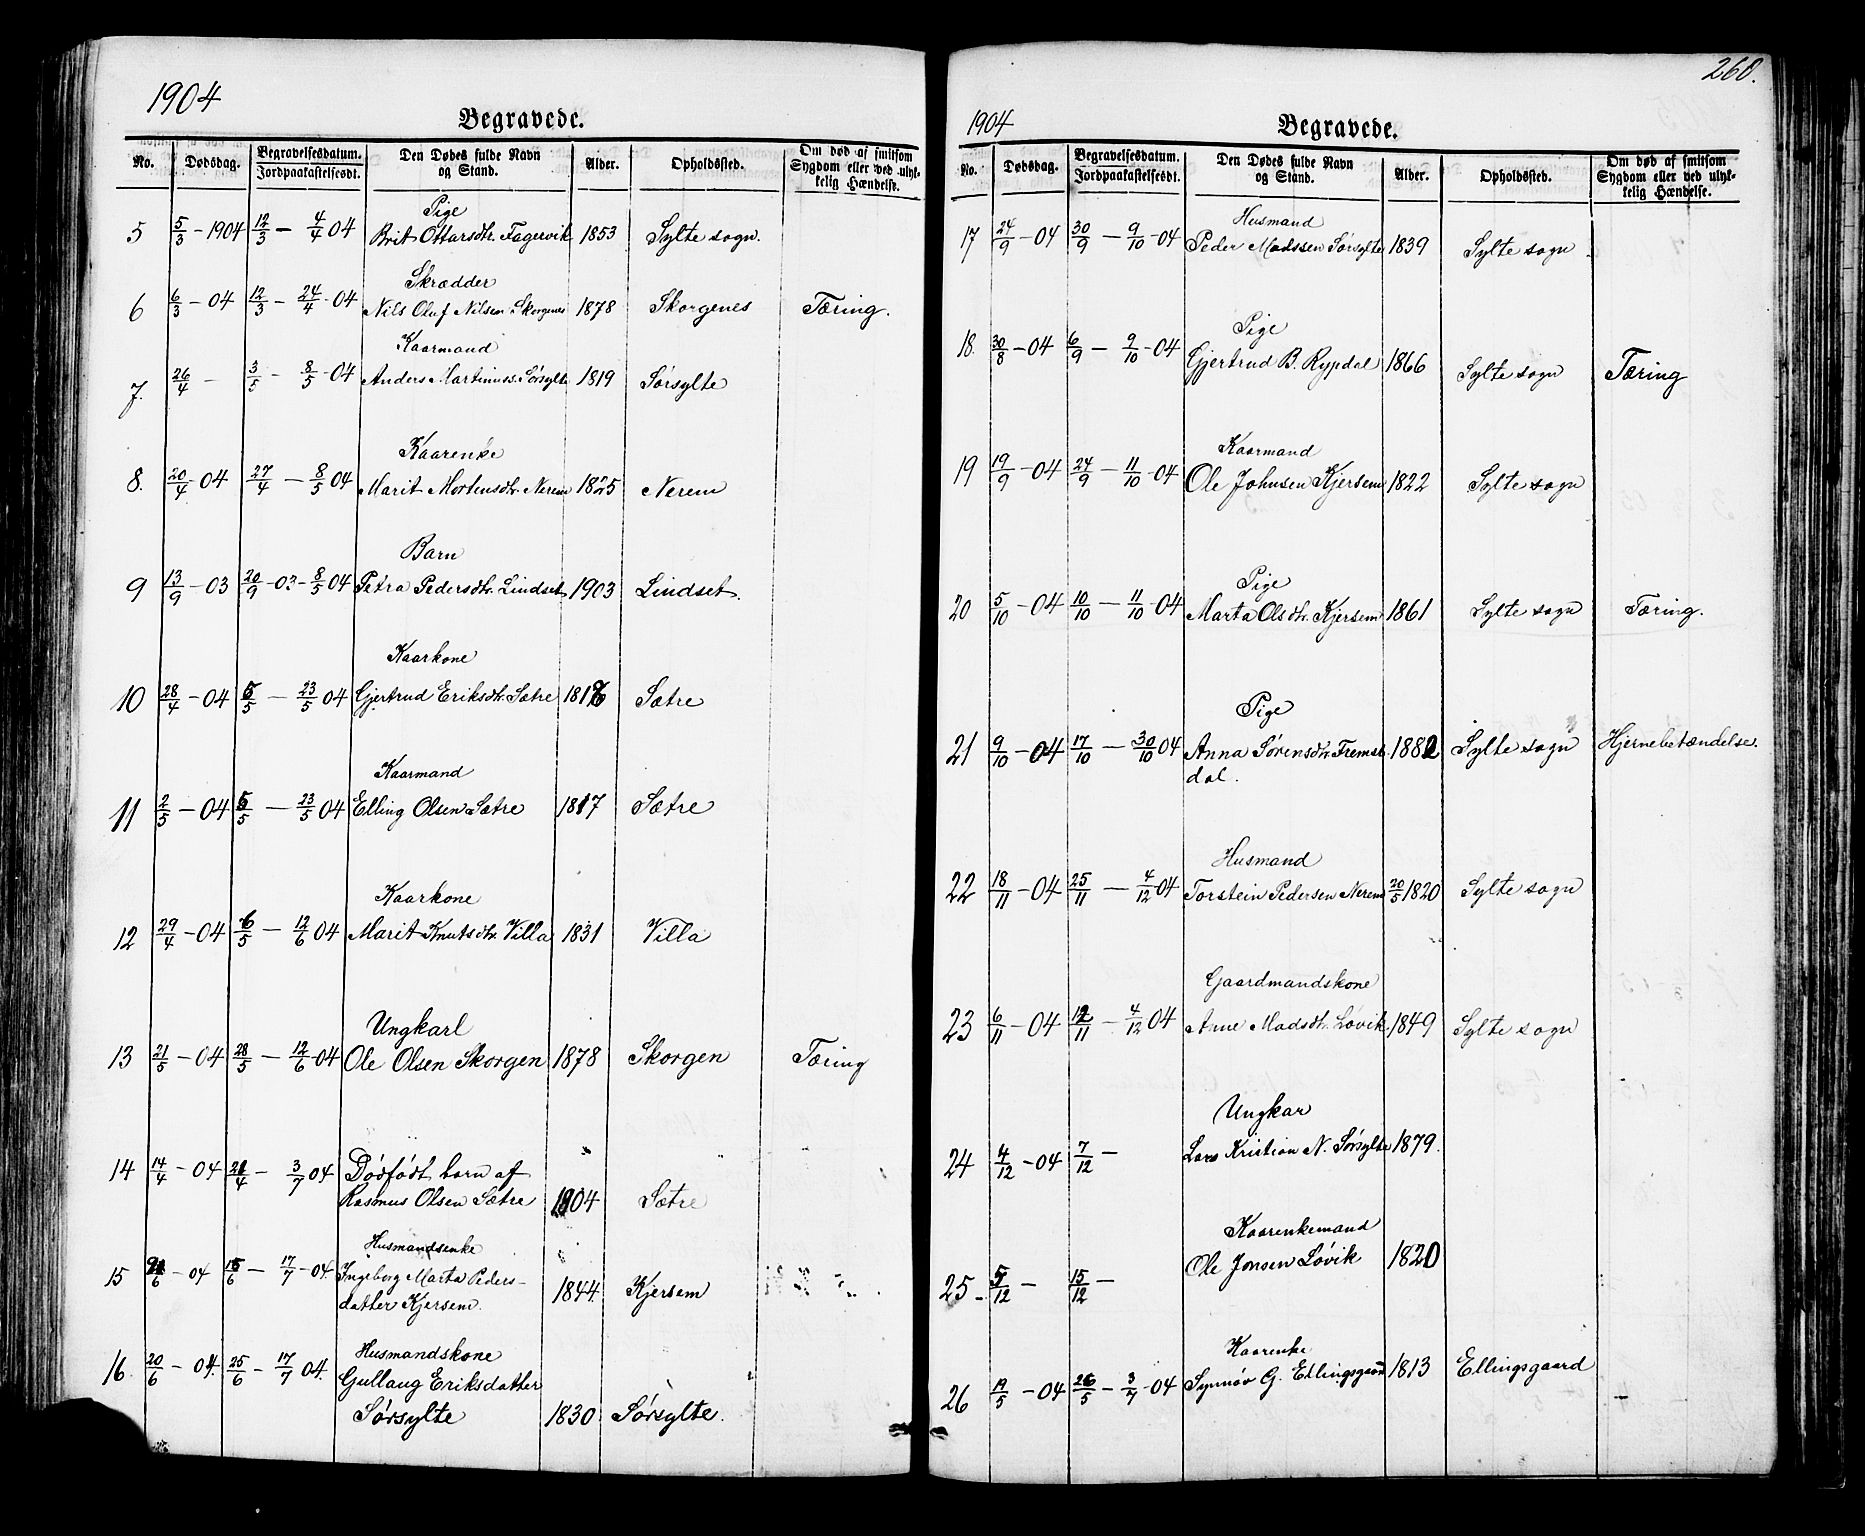 1904
Begravede.
No. Dødsdag. Begravelsesdatum. Jordpaakastelsesdt. Den Dødes fulde Navn og Stand. Alder. Opholdssted. Om død af smitsom Sygdom eller ved ulykkelig Hændelse.
Pige
5 5/3 - 1904 12/3 - 4/4 04 Brit Ottarsdtr. Fagervik 1853 Sylte sogn.
Skrædder
6 6/3 - 04 12/3 - 24/4 - 04 Nils Oluf Nilsen Skorgenes 1878 Skorgenes Tæring.
Kaarmand
7. 26/4 - 3/5 - 8/5 - 04 Anders Martinuss. Sørsylte 1819 Sørsylte
Kaarenke
8. 20/4 04 27/4 - 8/5 04 Marit Mortensdtr. Nerem 1825 Nerem
Barn
9 13/9 - 03 20/9 - 03 - 8/5 04 Petra Pedersdtr. Lindset 1903 Lindset.
Kaarkone
10 28/4 - 04 5/5 - 23/5 04 Gjertrud Eriksdtr. Sætre 1816 Sætre
Kaarmand
11 2/5 - 04 5/5 - 23/5 04 Elling Olsen Sætre 1817 Sætre
Kaarkone
12 29/4 - 04 6/5 - 12/6 04 Marit Knutsdtr. Villa 1831 Villa
Ungkarl
13 21/5 - 04 28/5 - 12/6 04 Ole Olsen Skorgen 1878 Skorgen Tæring
14 14/4 - 04 21/4 - 3/7 04 Dødfødt barn af
Rasmus Olsen Sætre 1904 Sætre
Husmandsenke
15 /6 - 04 15/6 - 17/7 - 04. Ingeborg Marta Peders-
datter Kjersem. 1844. Kjersem
Husmandskone
16. 20/6 - 04. 25/6 - 17/7 04. Gullaug Eriksdatter
Sørsylte 1830 Sørsylte.
260.
1904
Begravede.
No. Dødsdag. Begravelsesdatum. Jordpaakastelsesdt. Den Dødes fulde Navn og Stand. Alder. Opholdssted. Om død af smitsom Sygdom eller ved ulykkelig Hændelse.
Husmand
17 24/9 - 04 30/9 - 9/10 - 04 Peder Madssen Sørsylte 1839 Sylte sogn
Pige
18. 30/8 - 04 6/9 - 9/10 - 04 Gjertrud B. Rypdal 1866 Sylte sogn Tæring
Kaarmand
19 19/9 - 04 24/9 - 11/10 - 04 Ole Johnsen Kjersem 1822 Sylte sogn
Pige
20 5/10 - 04 10/10 - 11/10 - 04 Marta Olsdtr. Kjersem 1861 Sylte sogn Tæring.
Pige
21 9/10 - 04 17/10 - 30/10 04 Anna Sørensdtr. Fremst 1882 Sylte sogn Hjernebetændelse.
dal.
Husmand
22 18/11 - 04 25/11 - 4/12 04 Torstein Pedersen Nerem 20/5 1820 Sylte sogn
Gaardmandskone
23 6/11 - 04 12/11 - 4/12 04 Anne Madsdtr. Løvik. 1849 Sylte sogn
Ungkar
24 4/12 - 04 7/12 - Lars Kristian N. Sørsylte 1879.
Kaarenkemand
25 - 5/12 - 15/12 - Ole Jonsen Løvik 1820
Kaarenke
26 19/5 - 04 26/5 - 3/7 - 04 Synnøv G. Ellingsgaard 1813 Ellingsgaard